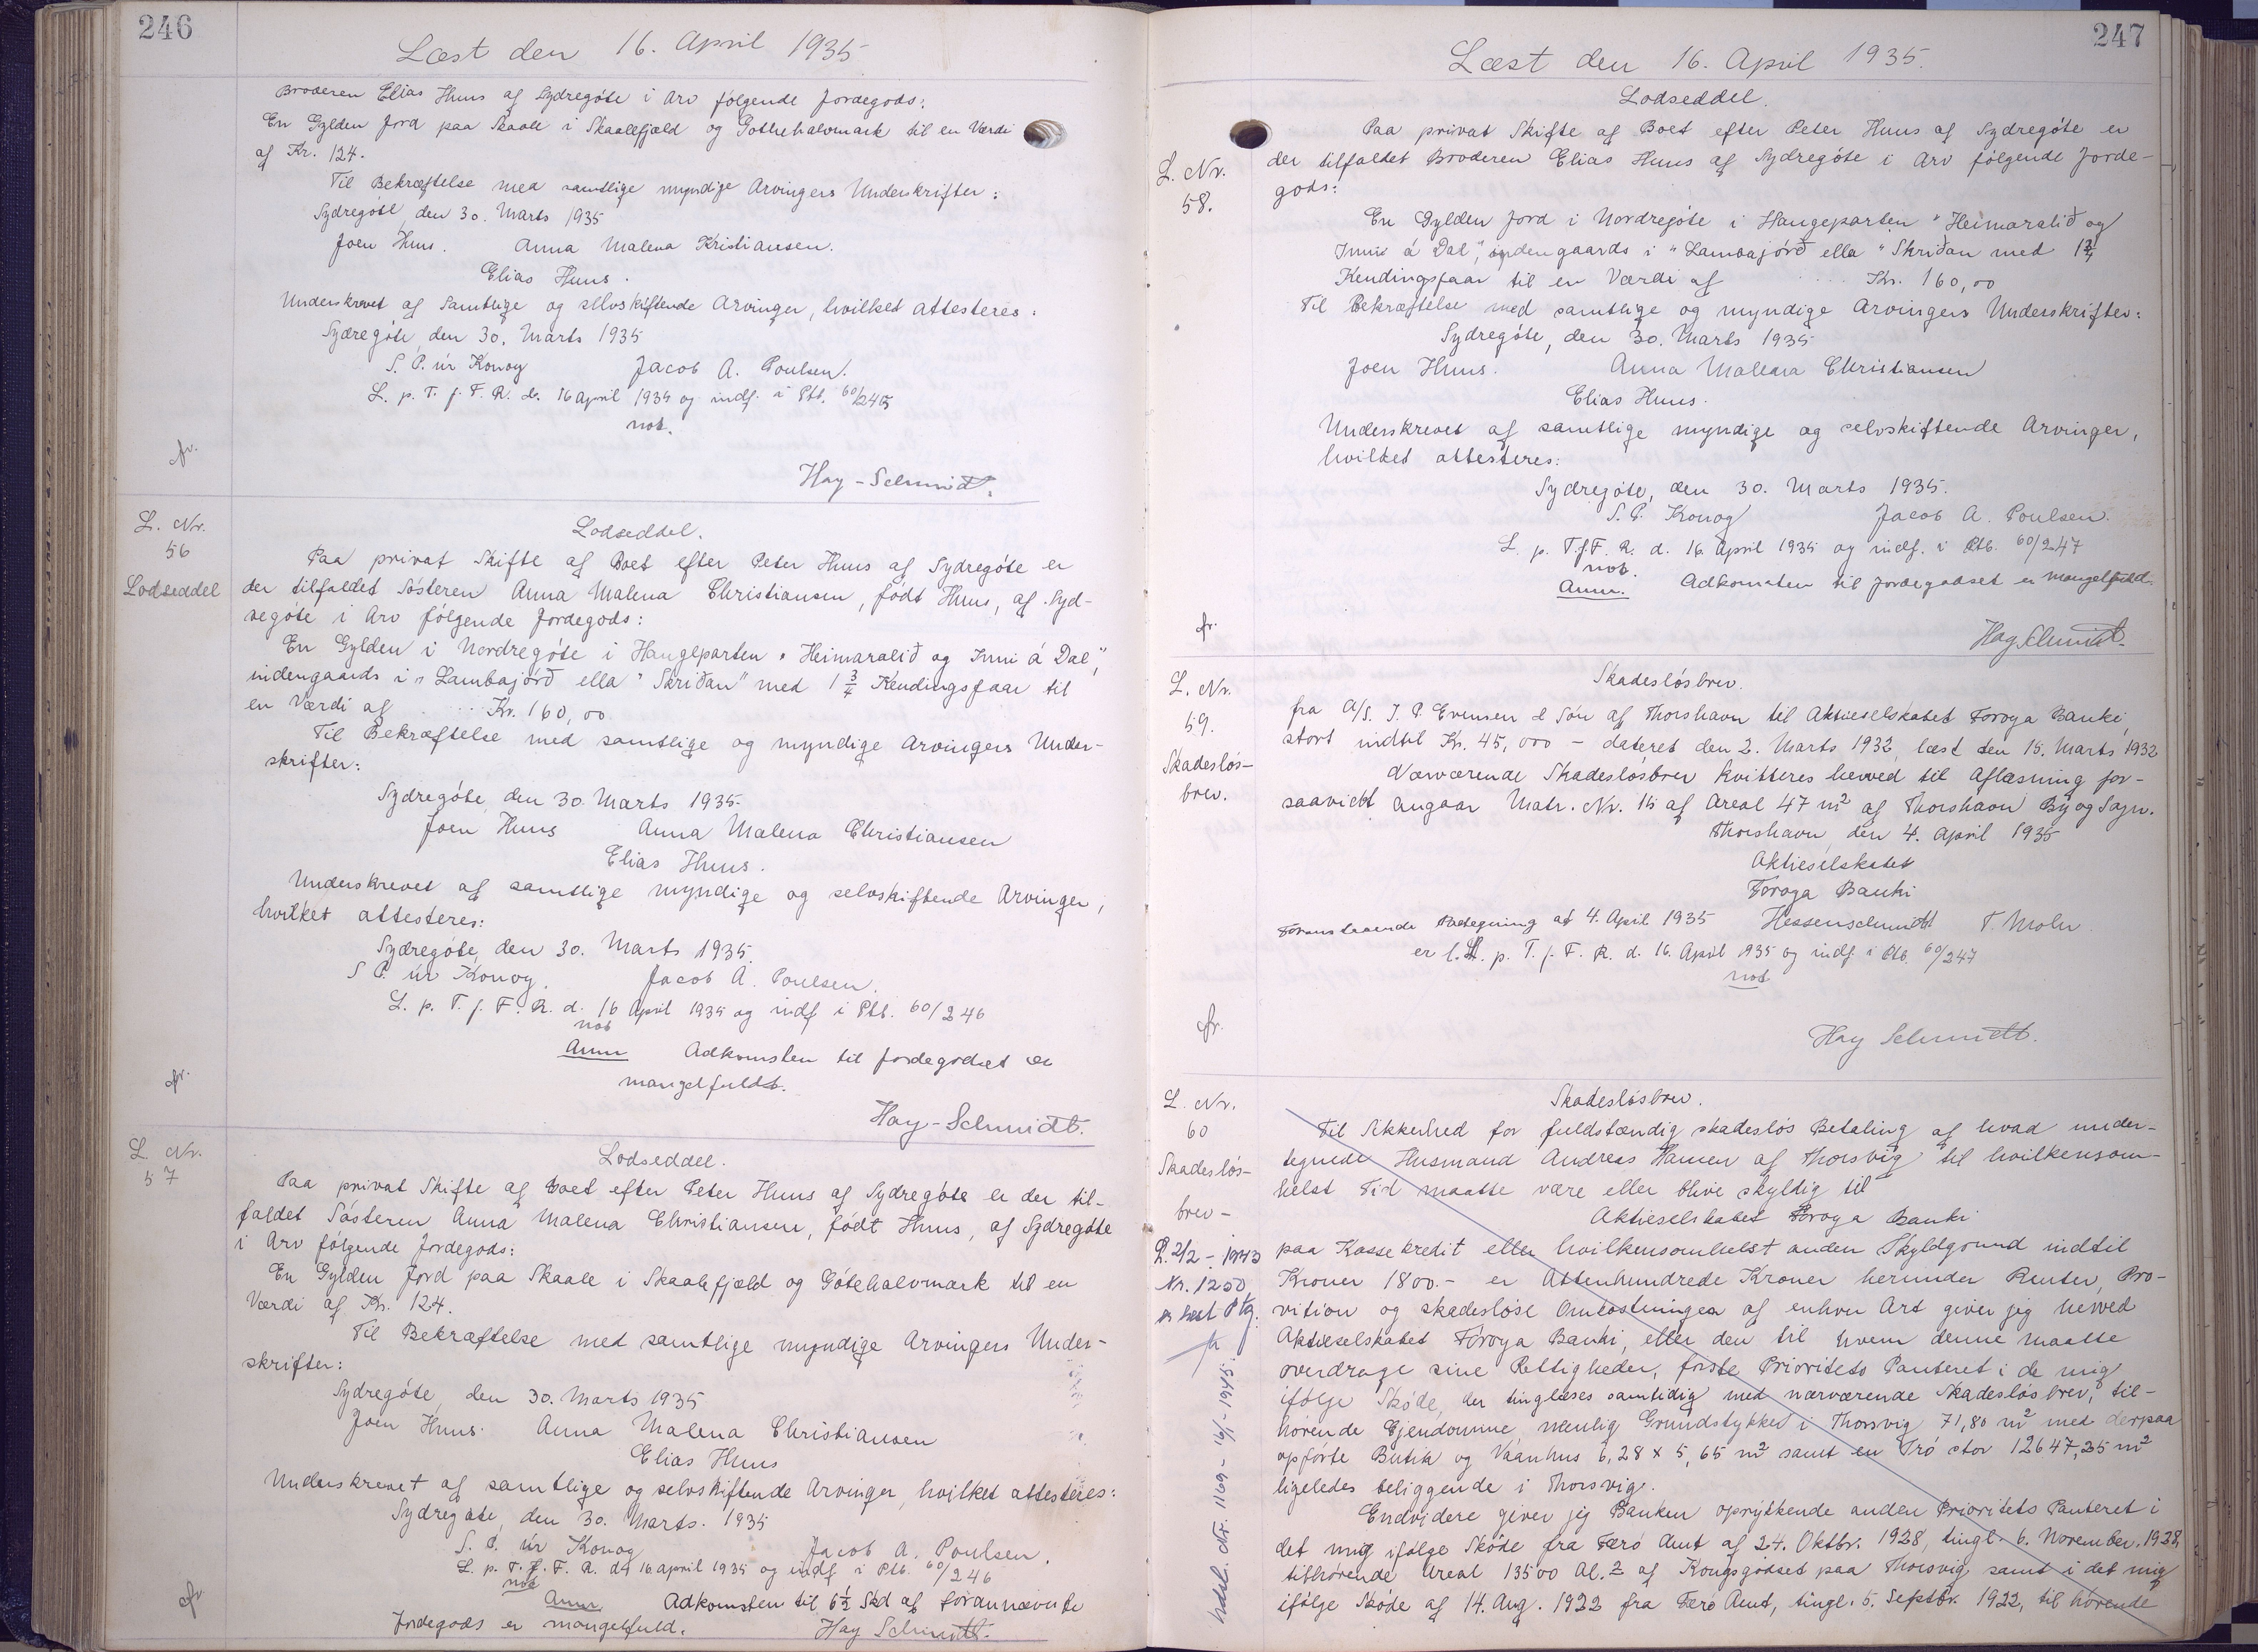 246
Læst den 16. April 1935
Broderen Elias Huus af Sydregóte i Arv følgende Jordegods:
En Gylden Jord paa Skaale i Skaalefjæld og Gøtehalvmark til en Værdi
af Kr. 124.
Til Bekræftelse med samtlige myndige Arvingers Underskrifter:
Sydregóte, den 30. Marts 1935
Joen Huus. Anna Malena Kristiansen.
Elias Huus.
Underskrevet af samtlige og selvskiftende Arvinger, hvilket attesteres:
Sydregóte, den 30. Marts 1935
S. P. úr Konoy Jacob A. Poulsen.
L. p. T. f. F. R. d. 16 april 1935 og indf. i Ptb. 60/245
not.
fr.
Hay-Schmidt.
L. Nr.
56
Lodseddel
Lodseddel.
Paa privat Skifte af Boet efter Peter Huus af Sydregóte er
der tilfaldet Søsteren Anna Malena Christiansen, født Huus, af Syd-
regóte i Arv følgende Jordegods:
En Gylden i Nordregóte i Haugeparten "Heimaralið og Inni á Dal",
indengaards i "Lambajørð ella "Skriðan" med 1 3/4 Kendingsfaar til
en Værdi af ... Kr. 160,00
Til Bekræftelse med samtlige og myndige Arvingers Under-
skrifter:
Sydregóte, den 30. Marts 1935
Joen Huus Anna Malena Christiansen
Elias Huus.
Underskrevet af samtlige myndige og selvskiftende Arvinger,
hvilket attesteres:
Sydregóte, den 30. Marts 1935.
S P. úr Konoy. Jacob A. Poulsen.
L. p. T. f. F. R. d. 16 April 1935 og indf i Ptb. 60/246
not
Anm Adkomsten til Jordegodset er
mangelfuldt.
fr.
Hay-Schmidt.
L. Nr.
57
Lodseddel.
Paa privat Skifte af Boet efter Peter Huus af Sydregóte er der til-
faldet Søsteren Anna Malena Christiansen, født Huus, af Sydregóte
i Arv følgende Jordegods:
En Gylden Jord paa Skaale i Skaalefjæld og Gótehalvmark til en
Værdi af Kr. 124.
Til Bekræftelse med samtlige myndige Arvingers Under-
skrifter:
Sydregóte, den 30. Marts 1935
Joen Huus. Anna Malena Christiansen
Elias Huus
Underskrevet af samtlige og selvskiftende Arvinger, hvilket attesteres:
Sydregóte, den 30. Marts. 1935
S. P. úr Konoy Jacob A. Poulsen.
L. p. T. f. F. R. d. 16 april 1935 og indf i Ptb. 60/246
not
Anm. Adkomsten til 6 1/2 Skd af forannævnte
Jordegods er mangelfuld. Hay Schmidt.
fr
247
Læst den 16. April 1935.
L. Nr.
58.
Lodseddel.
Paa privat Skifte af Boet efter Peter Huus af Sydregóte er
der tilfaldet Broderen Elias Huus af Sydregóte i Arv følgende Jorde-
gods:
En Gylden Jord i Nordregóte i Haugeparten "Heimaralið og
Inni á Dal", indengaards i "Lambajørð ella "Skriðan med 1 3/4
Kendingsfaar til en Værdi af ... Kr. 160,00
Til Bekræftelse med samtlige og myndige Arvingers Underskrifter:
Sydregóte, den 30. Marts 1935
Joen Huus. Anna Malena Christiansen
Elias Huus.
Underskrevet af samtlige myndige og selvskiftende Arvinger,
hvilket attesteres:
Sydregóte, den 30. Marts 1935.
S. P. Konoy Jacob A. Poulsen.
L. p. T. f. F. R. d. 16. April 1935 og indf. i Ptb. 60/247
not.
Anm. Adkomsten til Jordegodset er mangelfuld.
fr.
Hay Schmidt.
L. Nr.
59.
Skadesløs-
brev.
Skadesløsbrev.
fra A/S. J. P. Evensen & Søn af Thorshavn til Aktieselskabet Føroya Banki,
stort indtil Kr. 45,000 - dateret den 2. Marts 1932, læst den 15. Marts 1932
Nærværende Skadesløsbrev kvitteres herved til Aflæsning for-
saavidt angaar Matr. Nr. 15 af Areal 47 m² af Thorshavn By og Sogn.
Thorshavn den 4. April 1935
Aktieselskabet
Føroya Banki
Foranstaaende Paategning af 4. April 1935 Hessenschmidt T. Mohr.
er l. p. T. f. F. R. d. 16. April 1935 og indf. i Ptb. 60/247
not
fr.
Hay Schmidt.
L. Nr.
60
Skadesløs-
brev-
Q. 2/2 - 1943
Nr. 1250
Skadesløsbrev.
Til Sikkerhed for fuldstændig skadesløs Betaling af hvad under-
tegnede Husmand Andreas Hansen af Thorsvig til hvilkensom-
helst Tid maatte være eller blive skyldig til
Aktieselskabet Føroya Banki
paa Kassekredit eller hvilkensomhelst anden Skyldgrund indtil
Kroner 1800.- er Attenhundrede Kroner herunder Renter, Pro-
vition og skadesløse Omkostninger af enhver Art giver jeg herved
Aktieselskabet Føroya Banki, eller den til hvem denne maatte
overdrage sine Rettigheder, første Prioritets Panteret i de mig
ifølge Skøde, der tinglæses samtidig med nærværende Skadesløsbrev, til-
hørende Ejendomme, nemlig Grundstykket i Thorsvig 71,80 m² med derpaa
opførte Butik og Vaanhus 6,28 x 5,65 m² samt en Trø stor 12647,35 m²
ligeledes beliggende i Thorsvig.
Endvidere giver jeg Banken oprykkende anden Prioritets Panteret i
det mig ifølge Skøde fra Færø Amt af 24. Oktbr. 1928, tingl. 6. November. 1928,
tilhørende Areal 13500 Al.² af Kongsgodset paa Thorsvig samt i det mig
ifølge Skøde af 14. Aug. 1922 fra Færø Amt, tingl. 5. Septbr. 1922, til hørende